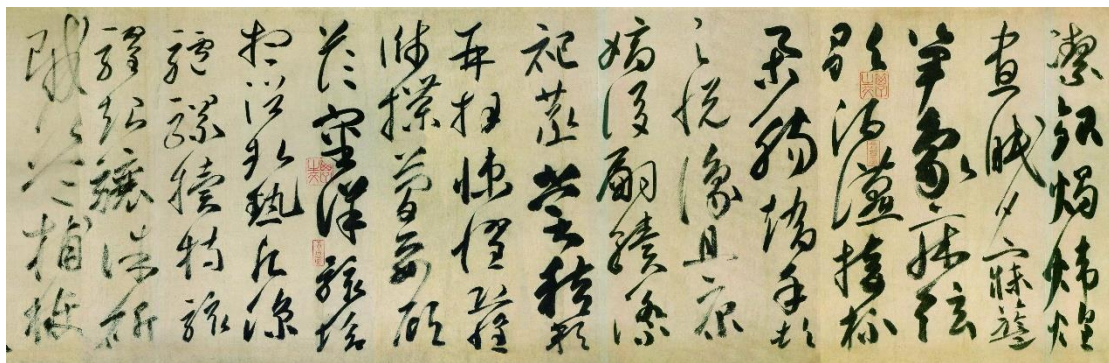 潔銀燭煒煌
晝眠夕寐藍
笋象床弦
歌酒讌接杯
舉觴矯手頓
足悦豫且康
嫡後嗣續祭
祀蒸嘗稽顙
再拜悚懼恐惶
牋牒簡要顧
答審詳骸垢
想浴執熱願涼
驢騾犢特駭
躍超驤誅斬
賊盜捕獲